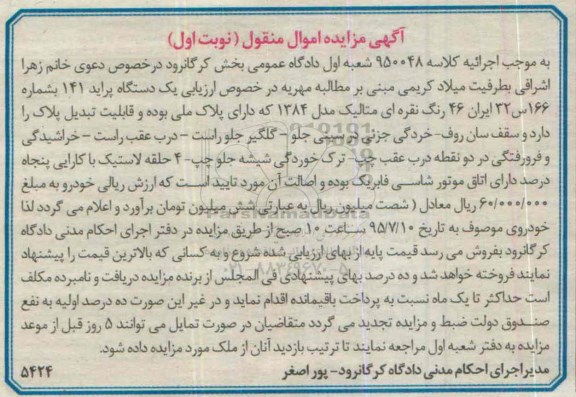 آگهی مزایده اموال منقول (نوبت اول)
به موجب اجرائیه کلاسه ۹۵۰۰۴۸ شعبه اول دادگاه عمومی بخش کرگانرود درخصوص دعوی خانم زهرا
اشراقی بطرفیت میلاد کریمی مبنی بر مطالبه مهریه در خصوص ارزیابی یک دستگاه پراید ۱۴۱ بشماره
۱۶۶س۳۲ ایران ۴۶ رنگ نقره ای متالیک مدل ۱۳۸۴ که دارای پلاک ملی بوده و قابلیت تبدیل پلاک را
دارد و سقف سان روف- خردگی جزیی در سینی جلو - گلگیر جلو راست - درب عقب راست - خراشیدگی
و فرورفتگی در دو نقطه درب عقب چپ- ترک خوردگی شیشه جلو چپ- ۴ حلقه لاستیک با کارایی پنجاه
درصد دارای اتاق موتور شاسی فابریک بوده و اصالت آن مورد تایید است که ارزش ریالی خودرو به مبلغ
۶۰/۰۰۰/۰۰۰ ریال معادل (شصت میلیون ریال به عبارتی شش میلیون تومان برآورد و اعلام می گردد لذا
خودروی موصوف به تاریخ ۹۵/۷/۱۰ ساعت ۱۰ صبح از طریق مزایده در دفتر اجرای احکام مدنی دادگاه
کرگانرود بفروش می رسد قیمت پایه از بهای ارزیابی شده شروع و به کسانی که بالاترین قیمت را پیشنهاد
نمایند فروخته خواهد شد و ده درصد بهای پیشنهادی فی المجلس از برنده مزایده دریافت و نامبرده مکلف
است حداکثر تا یک ماه نسبت به پرداخت باقیمانده اقدام نماید و در غیر این صورت ده درصد اولیه به نفع
صندوق دولت ضبط و مزایده تجدید می گردد متقاضیان در صورت تمایل می توانند ۵ روز قبل از موعد
مزایده به دفتر شعبه اول مراجعه نمایند تا ترتیب بازدید آنان از ملک مورد مزایده داده شود.
مدیر اجرای احکام مدنی دادگاه کرگانرود- پور اصغر
۵۴۲۴